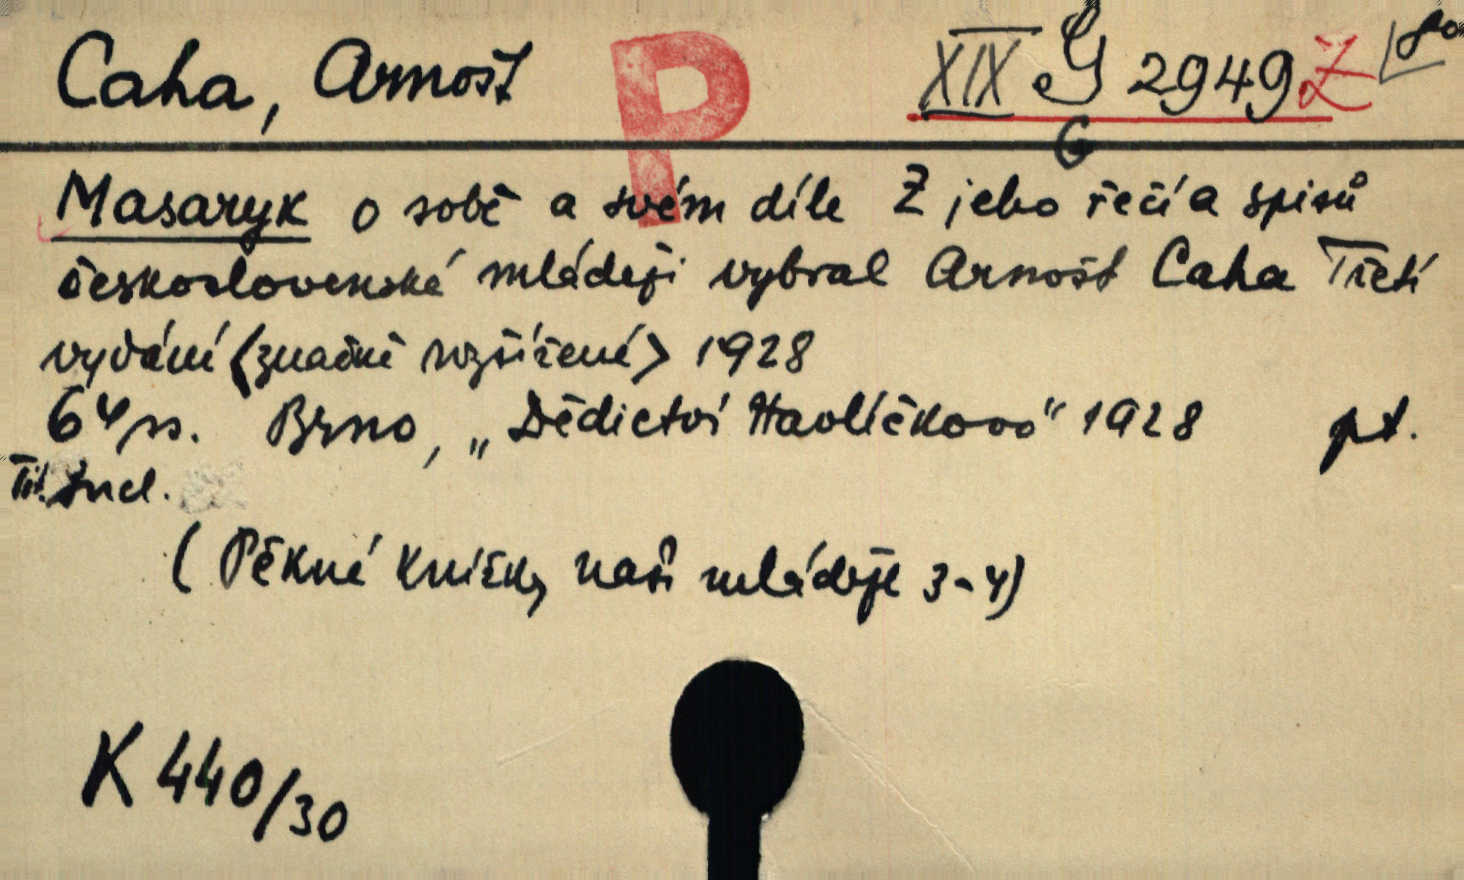 Caha, Arnošt P XIX G 2949 Z
G
Masaryk o sobě a svém díle Z jeho řečí a spisů
československé mládeži vybral Arnošt Caha Třetí
vydání (značně rozšířené) 1928
64 s. Brno, „Dědictví Havlíčkovo" 1928 pt.
Tit.
(Pěkné knížky naší mládeže 3-4)
K 440/30